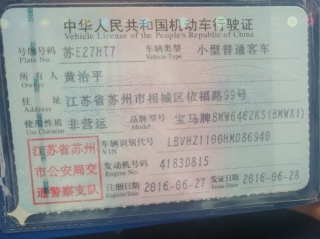 中华人民共和国机动车行驶证
Vehicle License of the People's Republic of China
号牌号码 苏E27HT7 车辆类型 小型普通客车
Plate No. Vehicle Type
所有人 黄治平
Owner
住址 江苏省苏州市相城区依福路99号
使用性质 非营运 品牌型号 宝马牌BMW6462KS(BMWX1)
Use Character
江苏省苏州 车辆识别代号 LBVHZ1100HMD86940
VIN
市公安局交 发动机号码 41830815
Engine No.
通警察支队 注册日期 2016-06-27 发证日期 2016-06-28
Register Date Issue Date